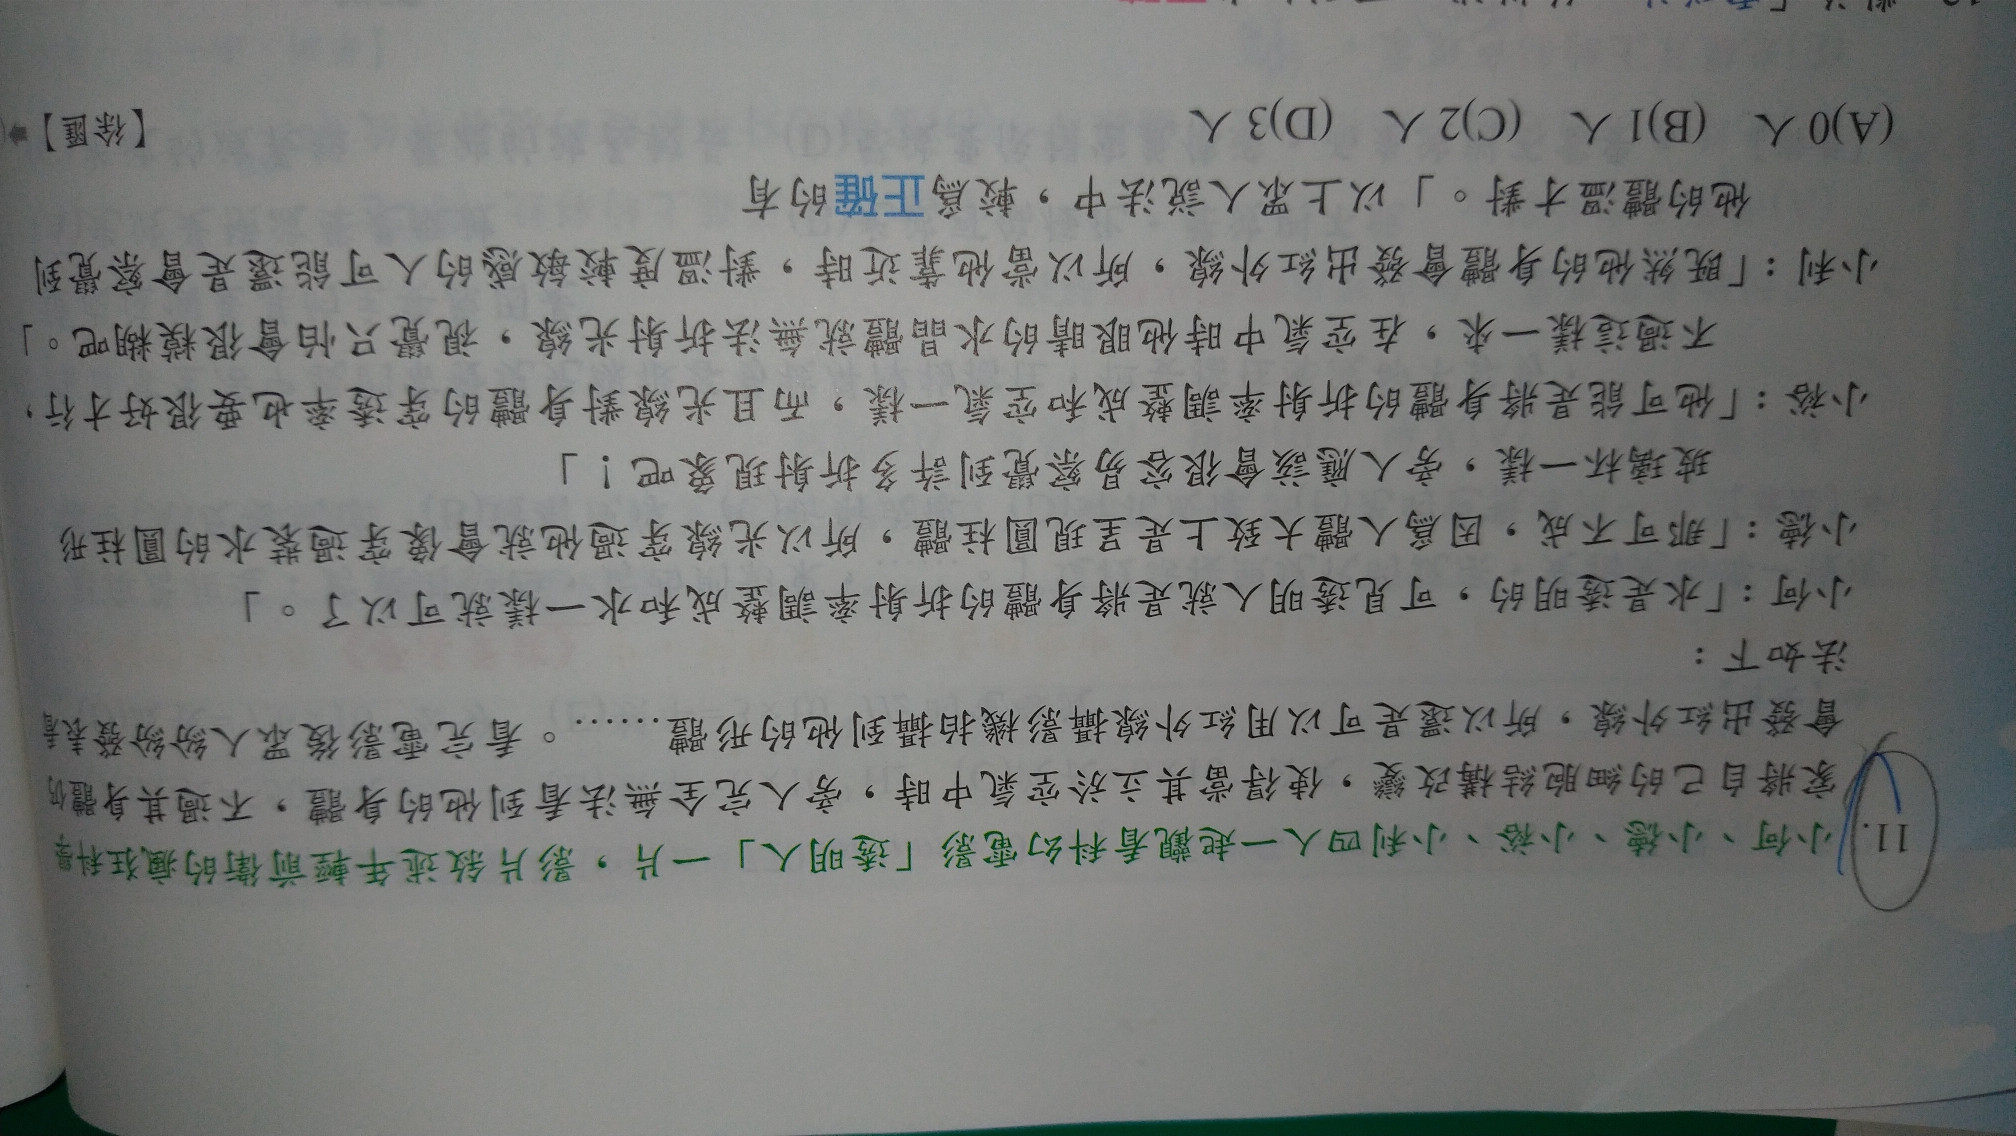 11. 小何、小德、小裕、小利四人一起觀看科幻電影「透明人」一片，影片敘述年輕前衛的瘋狂科學
家將自己的細胞結構改變，使得當其立於空氣中時，旁人完全無法看到他的身體，不過其身體仍
會發出紅外線，所以還是可以用紅外線攝影機拍攝到他的形體……。看完電影後眾人紛紛發表看
法如下：
小何：「水是透明的，可見透明人就是將身體的折射率調整成和水一樣就可以了。」
小德：「那可不成，因為人體大致上是呈現圓柱體，所以光線穿過他就會像穿過裝水的圓柱形
玻璃杯一樣，旁人應該會很容易察覺到許多折射現象吧！」
小裕：「他可能是將身體的折射率調整成和空氣一樣，而且光線對身體的穿透率也要很好才行，
不過這樣一來，在空氣中時他眼睛的水晶體就無法折射光線，視覺只怕會很模糊吧。」
小利：「既然他的身體會發出紅外線，所以當他靠近時，對溫度較敏感的人可能還是會察覺到
他的體溫才對。」以上眾人說法中，較為正確的有
(A)0 人 (B)1 人 (C)2 人 (D)3 人 【徐匯】